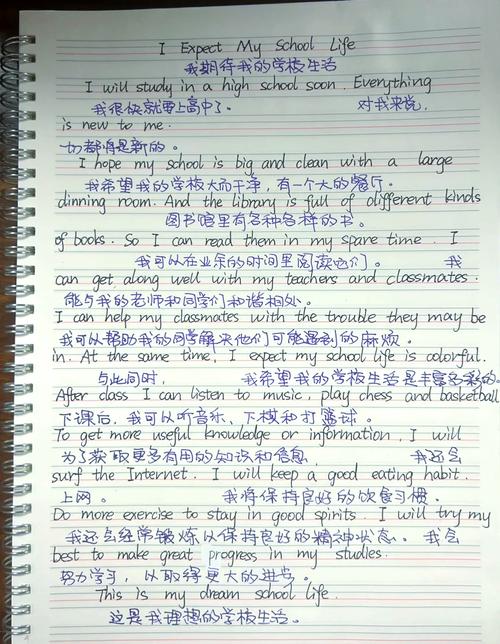 I Expect My School Life
我期待我的学校生活
I will study in a high school soon. Everything
我很快就要上高中了。 对我来说,
is new to me.
一切都将是新的。
I hope my school is big and clean with a large
我希望我的学校大而干净,有一个大的餐厅。
dinning room. And the library is full of different kinds
图书馆里有各种各样的书。
of books. So I can read them in my spare time. I
我可以在业余的时间里阅读他们。 我
can get along well with my teachers and classmates.
能与我的老师和同学们和谐相处。
I can help my classmates with the trouble they may be
我可以帮助我的同学解决他们可能遇到的麻烦。
in. At the same time, I expect my school life is colorful.
与此同时, 我希望我的学校生活是丰富多彩的。
After class I can listen to music, play chess and basketball
下课后,我可以听音乐、下棋和打篮球。
To get more useful knowledge or information, I will
为了获取更多有用的知识和信息, 我还会
surf the Internet. I will keep a good eating habit.
上网。 我将保持良好的饮食习惯。
Do more exercise to stay in good spirits. I will try my
我还会经常锻炼以保持良好的精神状态。我会
best to make great progress in my studies.
努力学习,以取得更大的进步。
This is my dream school life.
这是我理想的学校生活。